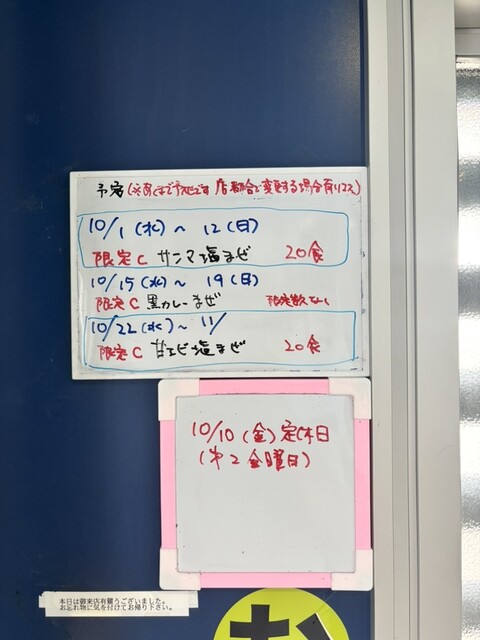 予定(※あくまで予定です 店都合で変更する場合有ります)
10/1(水)〜12(日)
限定C サンマ塩まぜ 20食
10/15(水)〜19(日)
限定C 黒カレーまぜ 限定数なし
10/22(水)〜11/
限定C 甘エビ塩まぜ 20食
10/10(金)定休日
(第2金曜日)
本日は御来店有難うございました。
お忘れ物に気を付けてお帰り下さい。